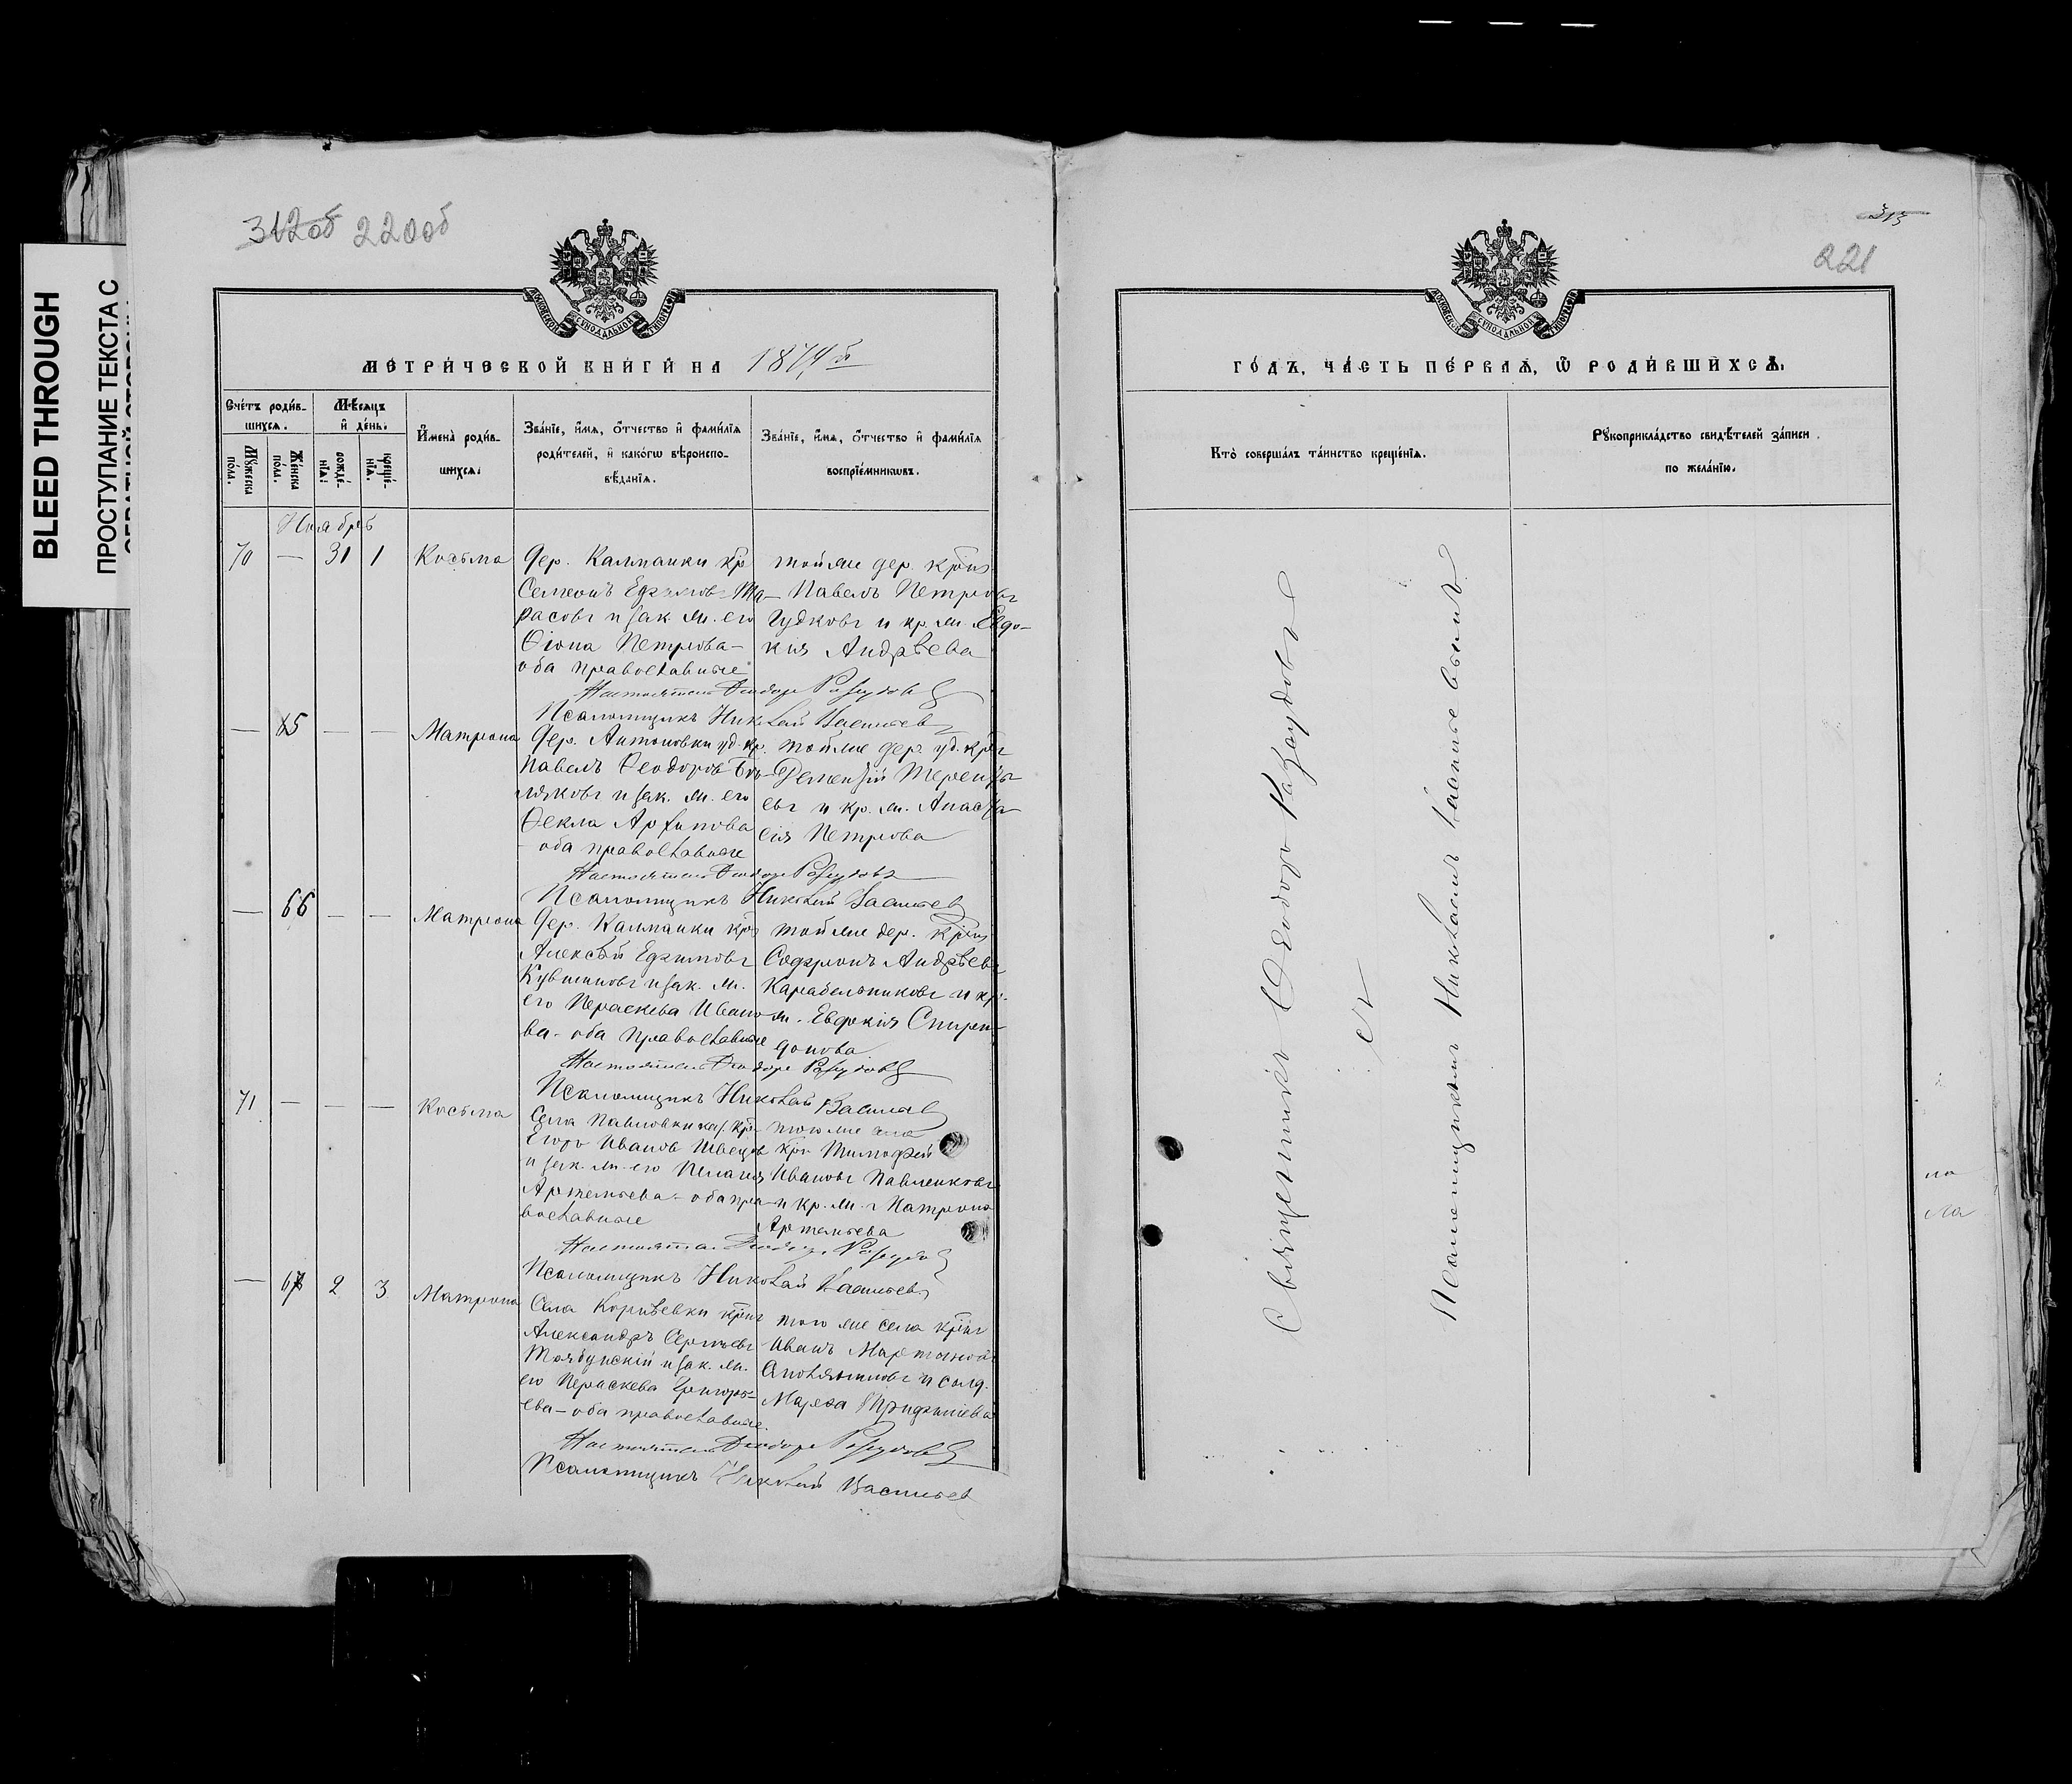 BLEED THROUGH
ПРОСТУПАНИЕ ТЕКСТА С
312об 220об
МЕТРИЧЕСКОЙ КНИГИ НА 1874й
Счетъ родив-
шихся.
Мужеска
полъ.
Женска
полъ.
Мѣсяцъ
и день.
рожде-
нія.
креще-
нія.
Имена родив-
шихся.
Званіе, имя, отчество и фамилія
родителей, и какогω вѣроиспо-
вѣданія.
Званіе, имя, отчество и фамилія
воспріемникωвъ.
Ноябрь
70 — 31 1 Косьма
дер. Калпанки кр
Семеонъ Та-
расовъ и зак. ж. его
Ѳіона Петрова-
оба православные
той же дер. крнъ
Павелъ Петровъ
Гудковъ и кр. ж. Евдо-
кія Андрѣева
Настоятель Ѳеодоръ Разудовъ
Псаломщикъ Николай Васильевъ
— 65 — — Матрона
Дер. Антоновки уд. кр.
Павелъ Ѳеодоровъ
и зак. ж. его
Ѳекла Архипова
оба православные
той же дер. уд. крнъ
Дементій Терентьевъ
и кр. ж. Анаста
сія Петрова
Настоятель Ѳеодоръ Разудовъ
Псаломщикъ Николай Васильевъ
— 66 — — Матрона
Дер. Калпанки кр
Алексѣй
Кувшиновъ и зак. ж.
его Параскева Ивано
ва- оба православные
той же дер. крнъ
Софронъ Андрѣевъ
Карабельниковъ и кр.
ж. Евдокія Спири-
донова
Настоятель Ѳеодоръ Разудовъ
Псаломщикъ Николай Васильевъ
71 — — — Косьма
Села Павловки каз. кр
Егоръ Ивановъ Швецовъ
и зак. ж. его Пелагія
Артемьева- оба пра-
вославные
того же села
крн Тимофей
Ивановъ Павленковъ
и кр. ж. Матрона
Артемьева
Настоятель Ѳеодоръ Разудовъ
Псаломщикъ Николай Васильевъ
— 67 2 3 Матрона
Села Корнѣевки крнъ
Александръ Сергѣевъ
и зак. ж.
его Параскева Григорь-
ева- оба православные
того же села крнъ
Иванъ Мартыновъ
и солд.
Марѳа
Настоятель Ѳеодоръ Разудовъ
Псаломщикъ Николай Васильевъ
313
221
ГОДЪ, ЧАСТЬ ПЕРВАЯ, Ѿ РОДИВШИХСЯ.
Кто совершалъ таинство крещенія.
Рукоприкладство свидѣтелей записи
по желанію.
Священникъ Ѳеодоръ Разудовъ
съ
Псаломщикомъ Николаемъ Васильевымъ